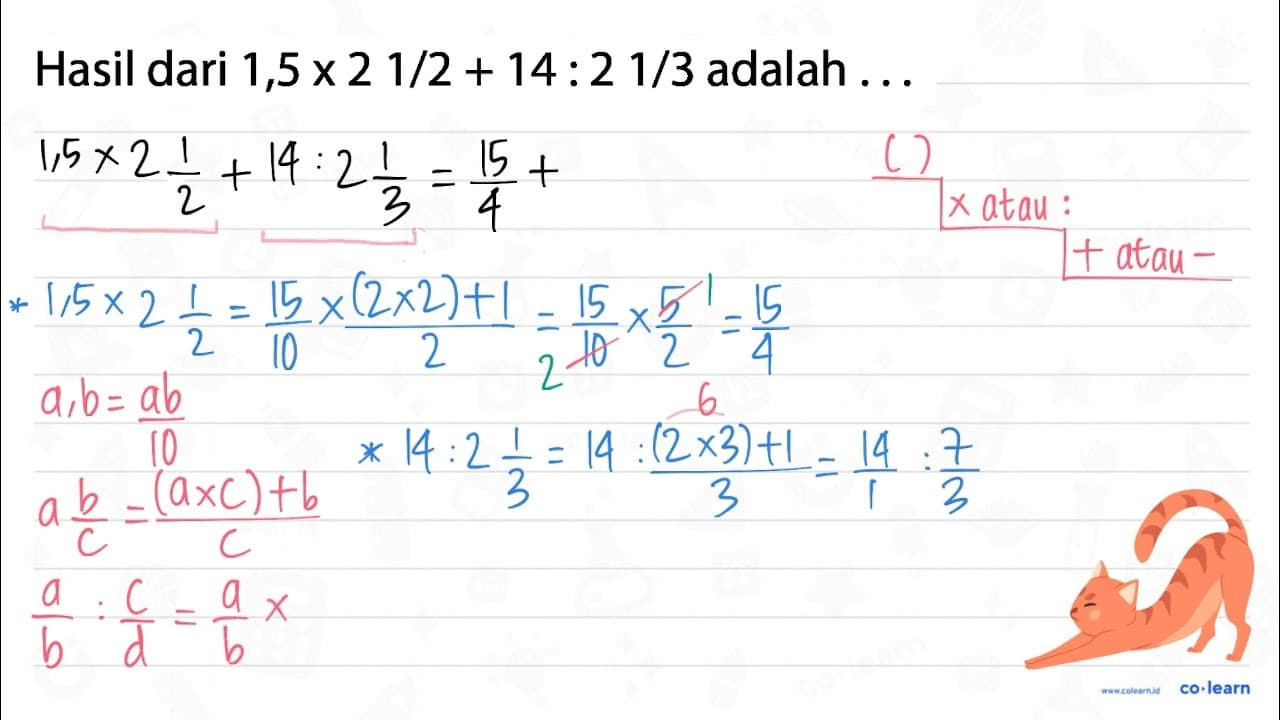 Hasil dari 1,5 x 2 1/2 + 14 : 2 1/3 adalah . . .
1,5 × 2 1/2 + 14 : 2 1/3 = 15/4 +
( )
× atau :
+ atau -
* 1,5 × 2 1/2 = 15/10 × (2×2)+1/2 = 15/10 × 5/2 = 15/4
1
2
a,b = ab/10
6
* 14 : 2 1/3 = 14 : (2×3)+1/3 = 14/1 : 7/3
a b/c = (a×c)+b/c
a/b : c/d = a/b ×
www.colearn.id co·learn